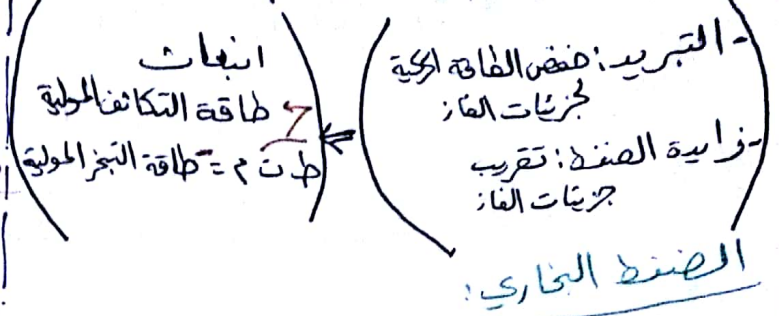 - التبريد: خفض الطاقة الحركية
لجزيئات الغاز
- زايدة الضغط: تقريب
جزيئات الغاز
انبعاث
طاقة التكاثف المولية
ط ت م = - طاقة التبخر المولية
الضغط البخاري: